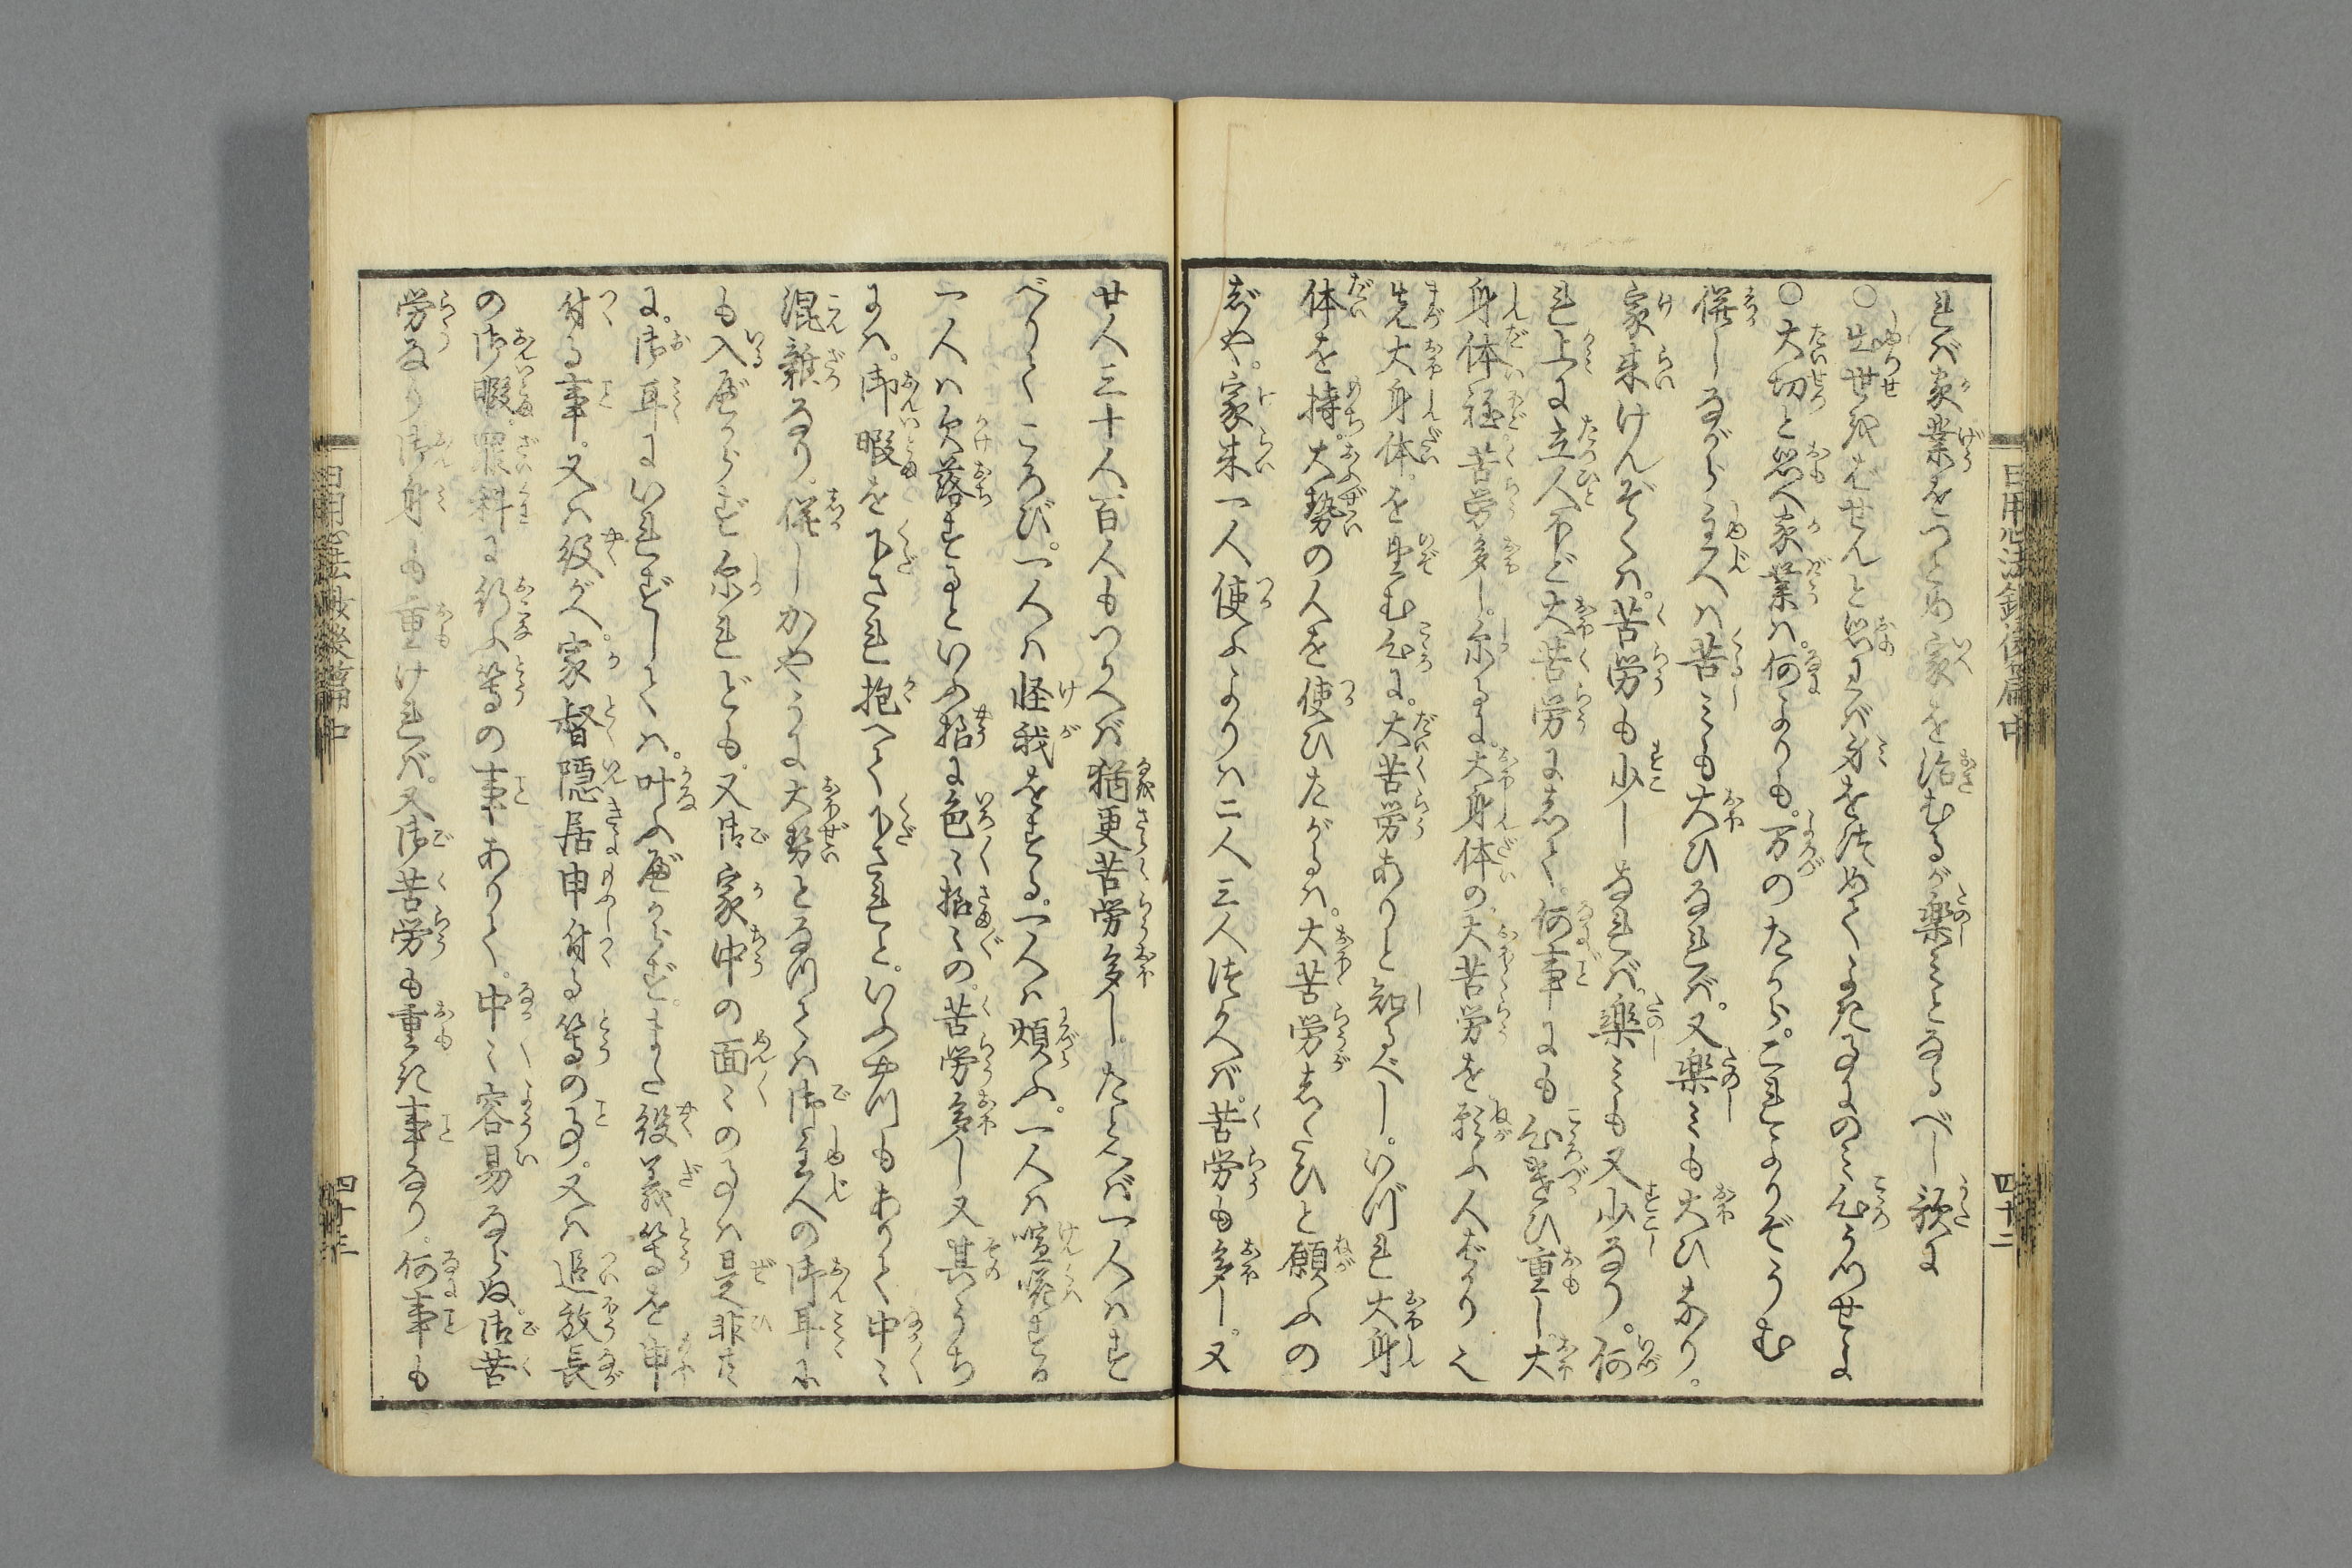 れば家業をつとめ家を治むるが楽ミとなるべし歌に
○出世をばせんと思はゞ身を修めてよき事にのミ心うつせよ
○大切と思へ家業ハ。何よりも。万のたから。これよりぞうむ
併しながら主人ハ苦ミも大ひなれバ。又楽ミも大ひなり。
家来けんぞくハ。苦労も少しなれバ。楽ミも又少なり。何
れ上に立人ほど大苦労にして。何事にも心遣ひ重し。大
身体程苦労多し。尓るに大身体の大苦労を願ふ人ばかり
先大身体。を望む心に。大苦労ありと知るべし。いづれ大身
体を持。大勢の人を使ひたがるハ。大苦労がしたひと願ふの
じや。家来一人使ふよりハ二人三人使へバ。苦労も多し。又
廿人三十人百人もつかへバ猶更苦労多し。たとへバ一人ハす
べりてころび。一人ハ怪我をする。一人ハ煩ふ。一人ハ喧嘩する
一人ハ欠落するといふ様に色々様々の。苦労多し又其うち
にハ。御暇を下され抱へて下されと。いふ奴もありて中々
混雑なり。併しかやうに大勢となつてハ御主人の御耳に
も入べからず尓れども。又御家中の面々の事ハ是非
に。御耳にいれずしてハ。叶ふべからず。また役義等を申
付る事。又ハ役がへ。家督隠居申付る等の事。又ハ追放長
の御暇。罪科に行ふ等の事ありて。中々容易ならぬ。御苦
労なり御身も重けれバ。又御苦労も重き事なり。何事も
日用心法鈔後篇中
四十二
日用心法鈔後篇中
四十三